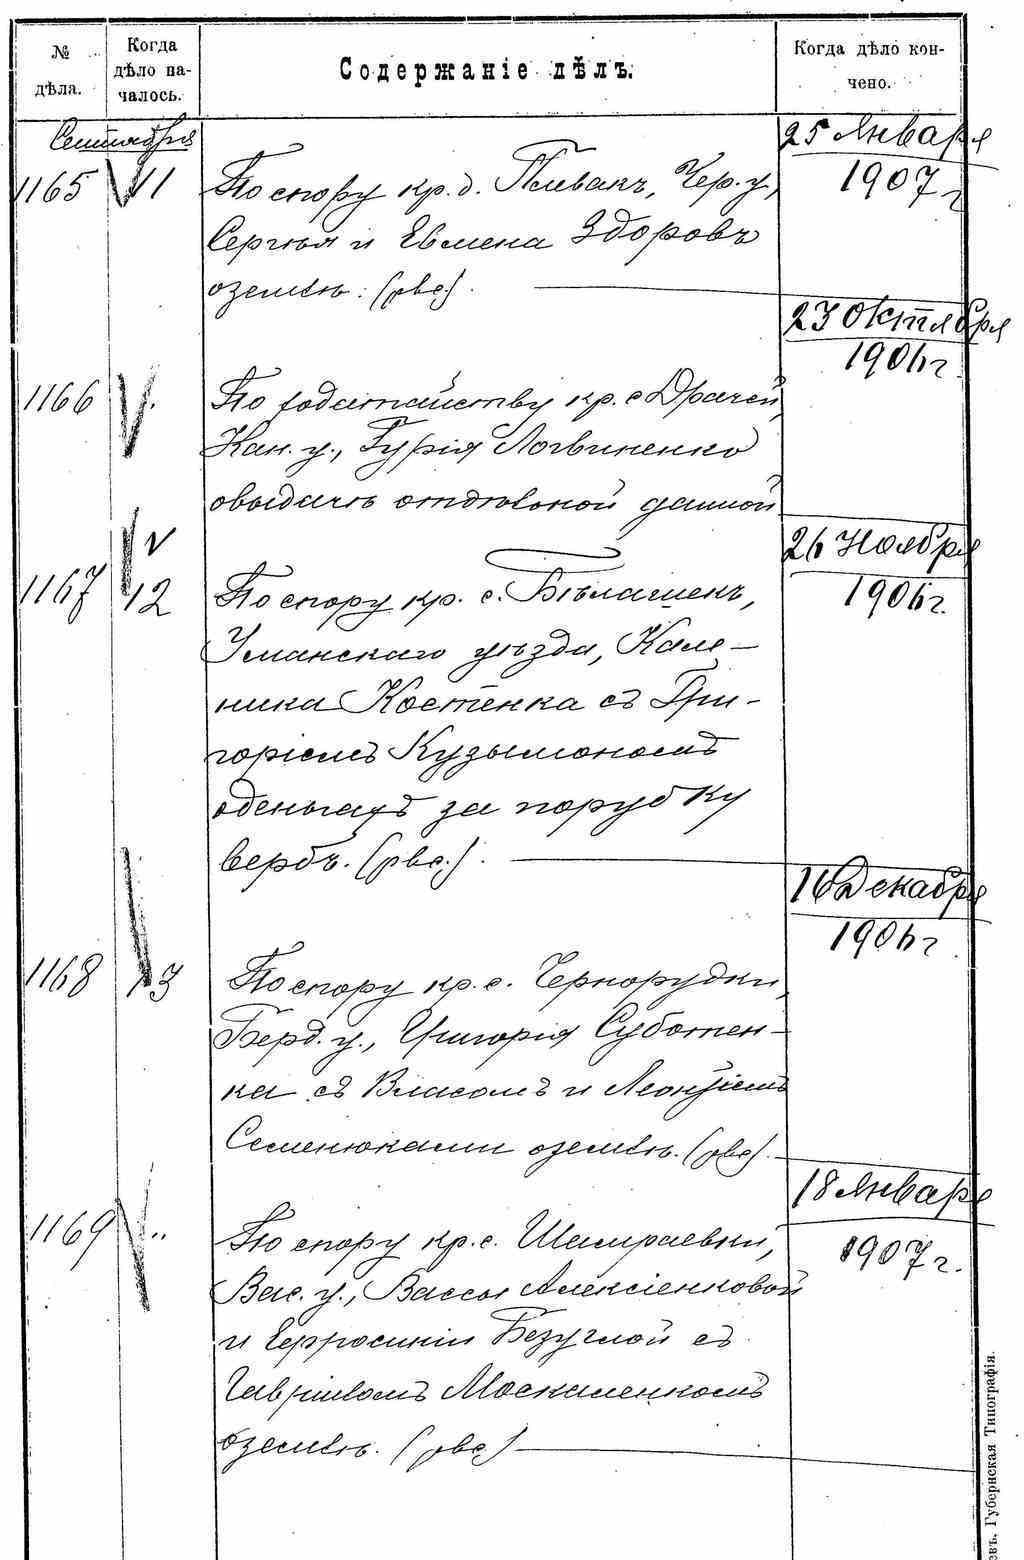 № дѣла.
Когда дѣло на-
чалось.
Содержаніе дѣлъ.
Когда дѣло кон-
чено.
Сентября
25 Января
1907 г
1165 11 По спору кр. д. Пливакъ, Чер. у,
Сергѣя и Евмена Здоровъ
о землѣ.
23 Октября
1906 г.
1166 По ходатайству кр. с Драчей,
Кан. у., Гурія Логвиненко
о выдачѣ отдѣльной данной
26 Ноября
1906 г.
1167 12 По спору кр. с. Бѣлашекъ,
Уманскаго уѣзда, Кале-
ника Костенка съ Гри-
горіемъ Кузьмономъ
о деньгахъ за порубку
вербъ.
16 Декабря
1906 г
1168 13 По спору кр. с. Чернорудки,
Берд. у., Григорія Суботен-
ка съ Власомъ и
Семенюками о землѣ.
18 Января
1907 г.
1169 " По спору кр. с. Шамраевки,
Вас. у., Вассы Алексіенковой
и Евфросиніи Безуглой съ
Гавріиломъ Москаленкомъ
о землѣ.
Губернская Типографія.